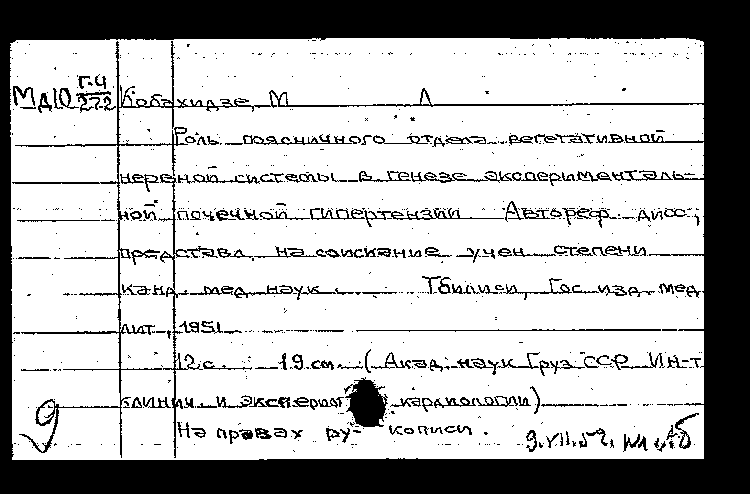 МД10 Г-4/272 Кобахидзе, М Л
Роль поясничного отдела вегетативной
нервной системы в генезе эксперименталь-
ной почечной гипертензии Автореф. дисс.,
представл. на соискание учен степени
канд. мед наук. Тбилиси, Гос изд. мед
лит, 1951
12 с. 19 см. (Акад. наук Груз ССР Ин-т
клинич. и эксперим кардиологии)
На правах ру- кописи.
9